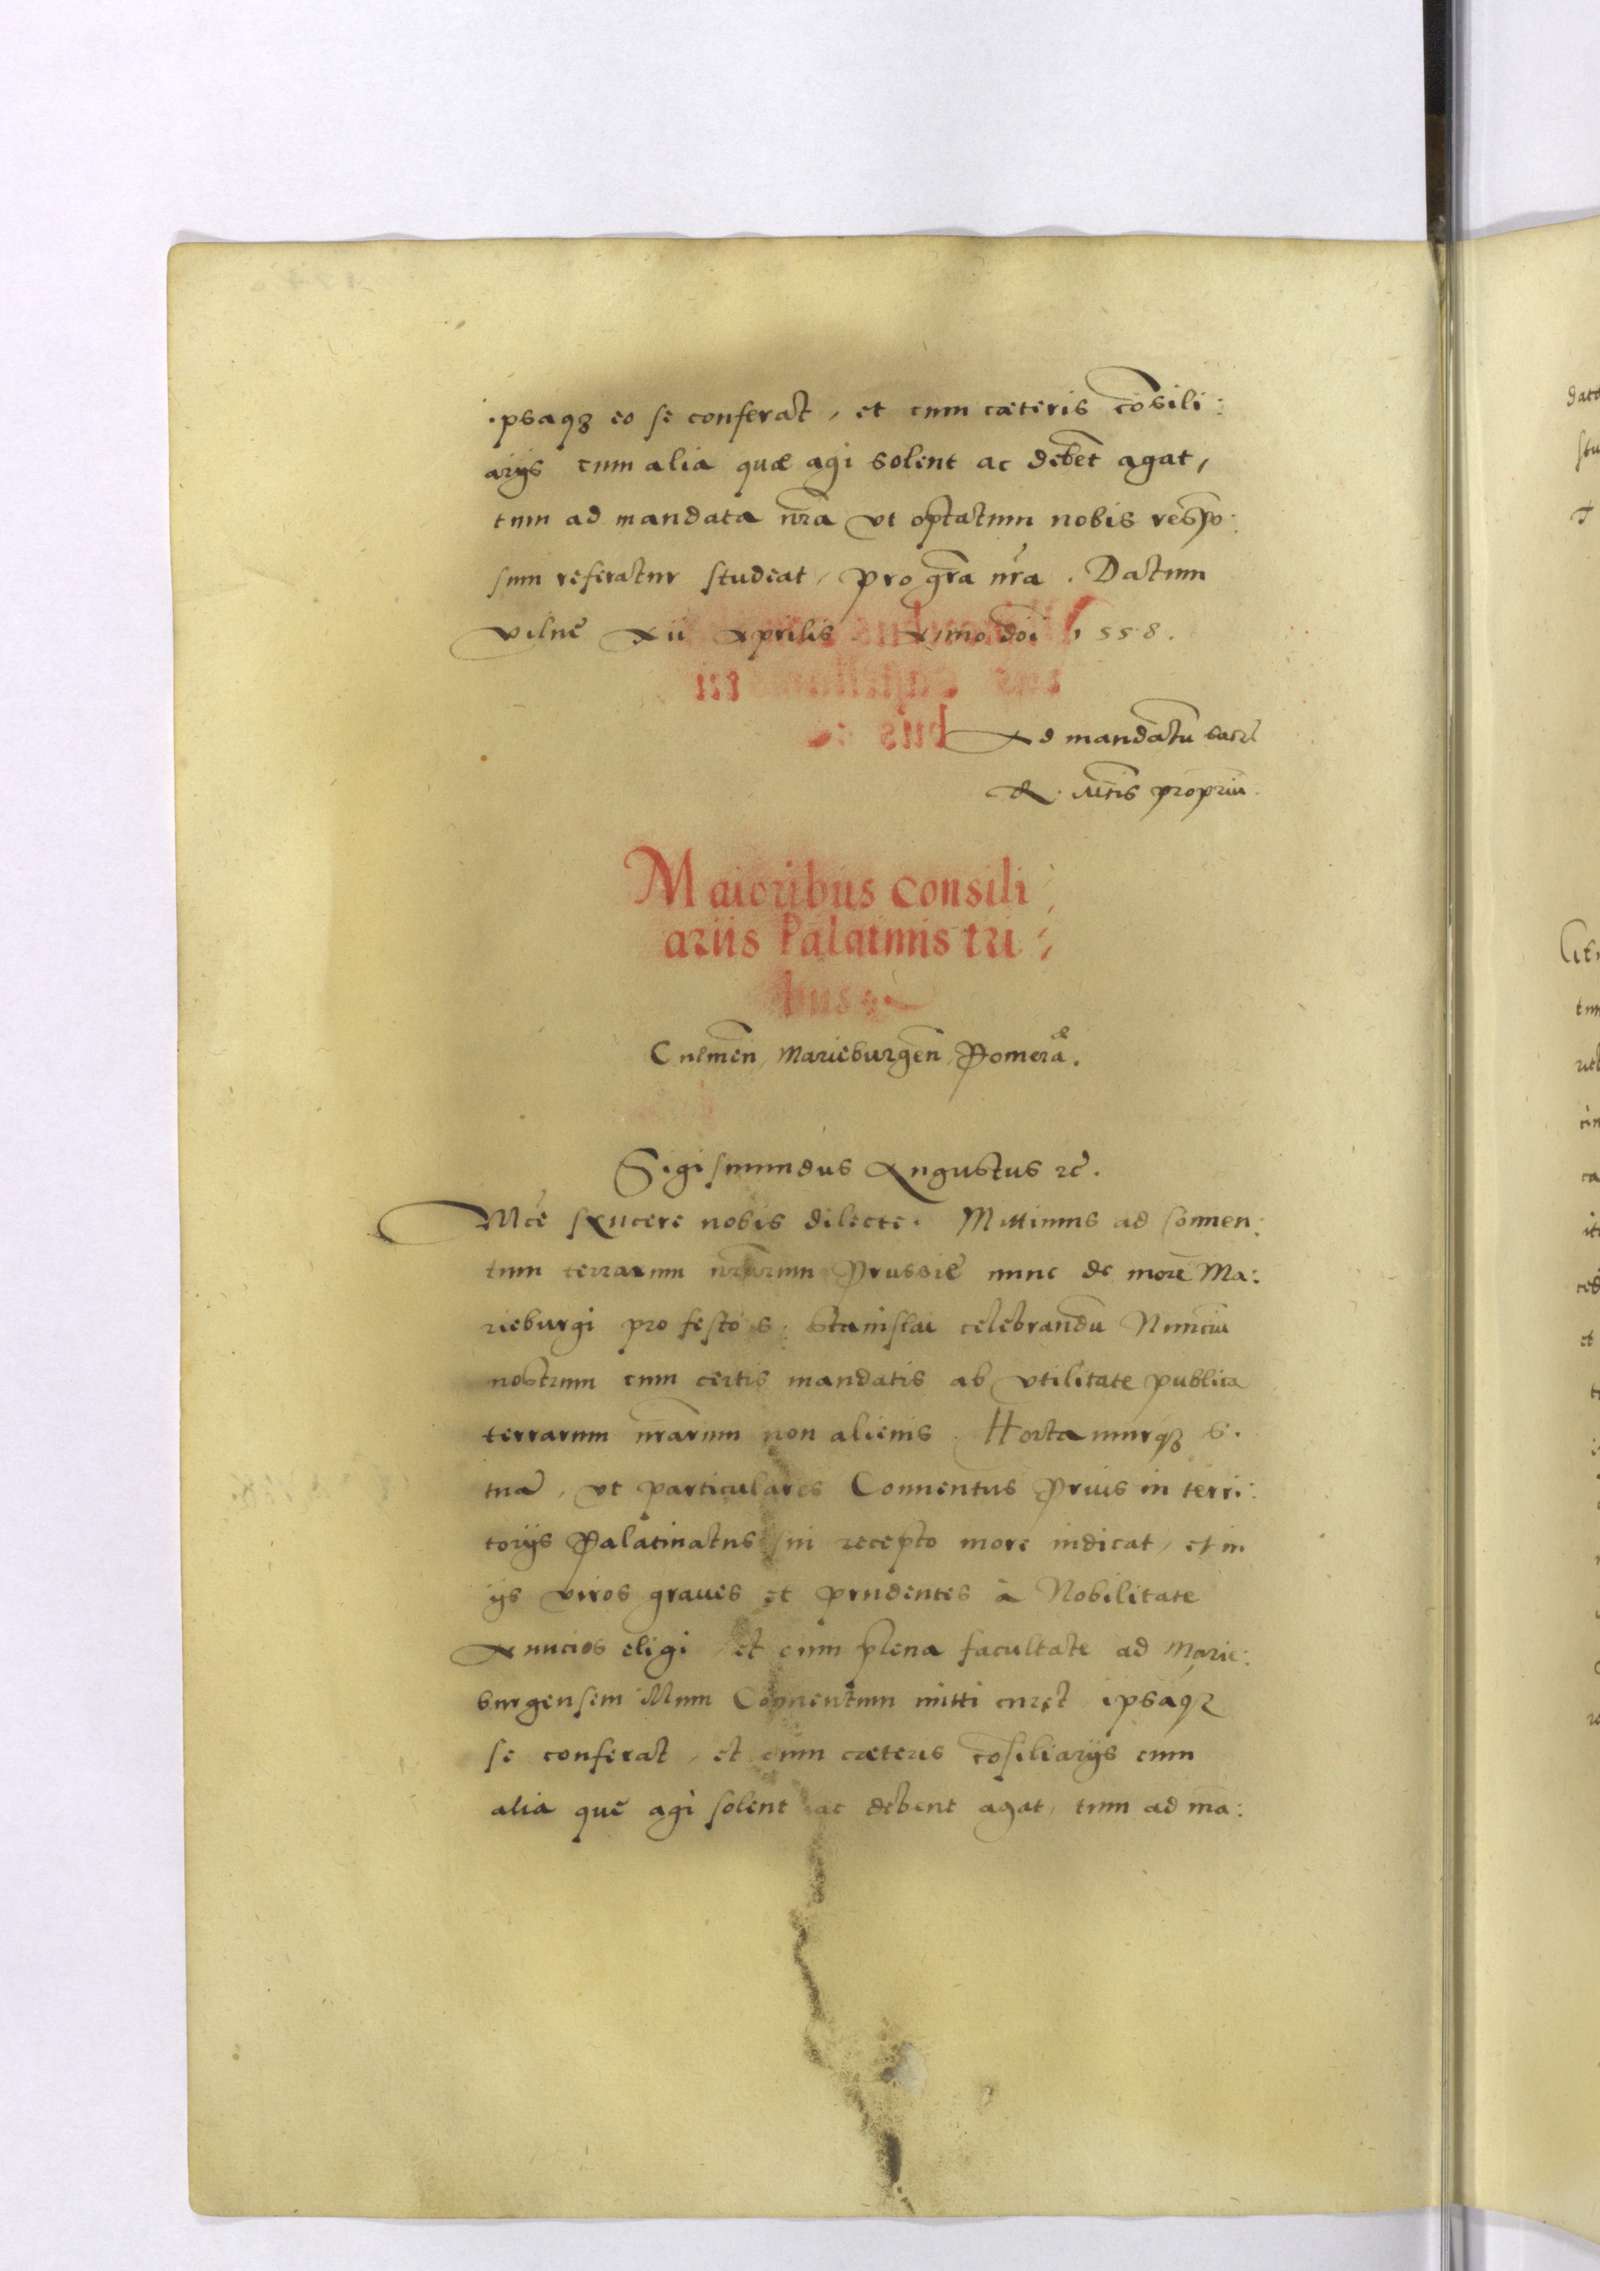 ipsaqȝ eo se conferat, et cum cæteris cōsili:
arijs cum alia quæ agi solent ac debēt agat,
tum ad mandata nr̄a vt optatum nobis respō:
sum referatur studeat, pro gr̄a nr̄a. Datum
Vilnę xii Aprilis Anno dōi 1558.
Ad mandatū sacrę
R. Mtis̄ propriū.
Maioribus consili:
ariis Palatinis tri:
bus
Culmeñ, Marieburgeñ, Pomerā.
Sigismundus Augustus rc̄.
Mce syncere nobis dilecte. Mittimus ad conuen:
tum terrarum nr̄arum Prussię nunc de more Ma:
rieburgi pro festo S. Stanislai celebrandū Nunciū
nostrum cum certis mandatis ab vtilitate publica
terrarum nr̄arum non alienis. Hortamurqȝ S.
tuā, vt particulares Conuentus prius in terri:
torijs Palatinatus sui recepto more indicat, et in
ijs viros graues et prudentes à Nobilitate
Nuncios eligi, et cum plena facultate ad Marie:
burgensem illum Conuentum mitti curet ipsaqȝ
se conferat, et cum cæteris cōsiliarijs cum
alia quę agi solent ac debent agat, tum ad mā: